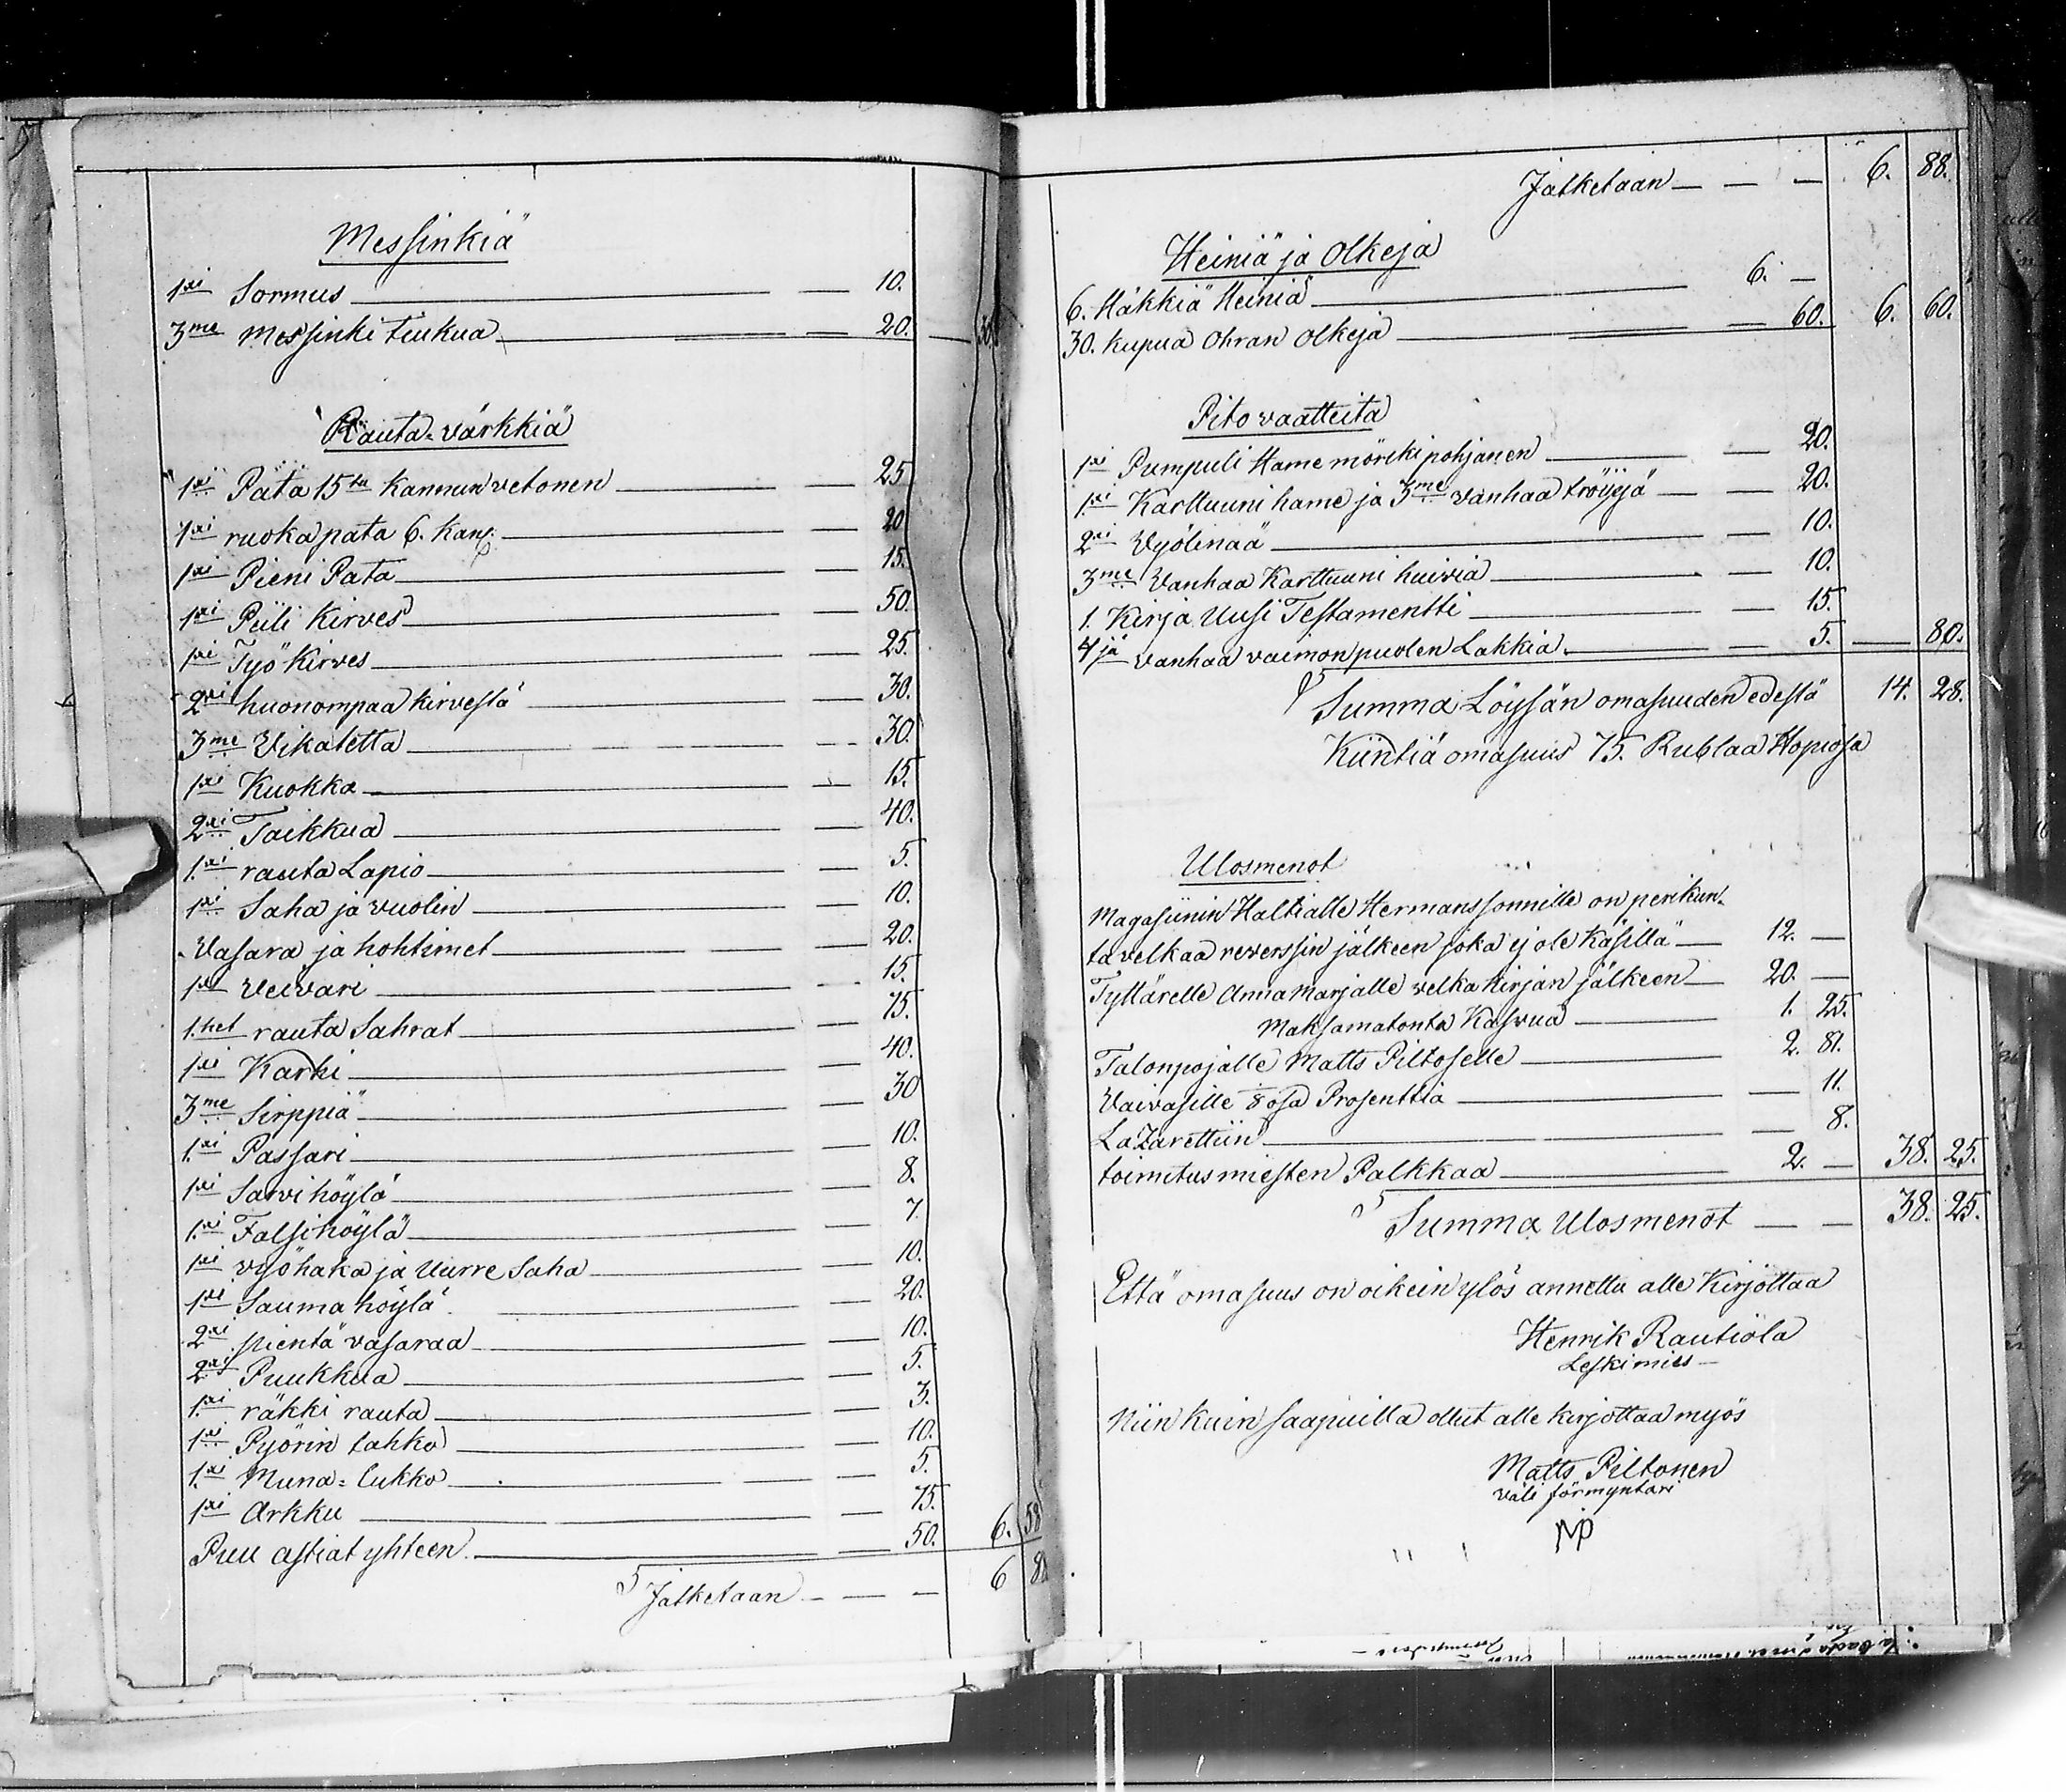 Messinkiä
1xi Sormus — — 10.
3me Messinki tiukua — — 20. — 30
Rauta-värkkiä
1xi Pata 15ta Kannun vetonen — — 25
1xi ruoka pata 6. Kan: — — 20
1xi Pieni Pata — — 15.
1xi Piili Kirves — — 50.
1xi Työ Kirves — — 25.
2xi huonompaa kirvestä — — 30.
3me Vikatetta — — 30.
1xi Kuokka — — 15.
2xi Taikkua — — 40.
1xi rauta Lapio — — 5.
1xi Saha ja vuolin — — 10.
Vasara ja hohtimet — — 20.
1xi Veivari — — 15.
1.het rauta Sahrat — — 75.
1xi Karhi — — 40.
3me Sirppiä — — 30
1xi Passari — — 10.
1xi Sarvihöylä — — 8.
1xi Falsihöylä — — 7.
1xi vyöhaka ja Uurre Saha — — 10.
1xi Sauma höylä — — 20.
2xi pientä vasaraa — — 10.
2xi Puukkua — — 5.
1xi räkki rauta — — 3.
1xi Pyörin tahko — — 10.
1xi Muna-lukko — — 5.
1xi Arkku — — 75.
Puu astiat yhteen — — 50. 6. 58
Jatketaan — — — 6 88
Jatketaan — — — 6. 88.
Heiniä ja Olkeja
6. Häkkiä Heiniä — 6. —
30. kupua Ohran Olkeja — — 60. 6. 60.
Pito vaatteita
1xi Pumpuli Hame mörski pohjanen — — 20.
1xi Karttuuni hame ja 3me vanhaa tröijyä — — 20.
2xi Vyölinaä — — 10.
3me Vanhaa Karttuuni huivia — — 10.
1. Kirja Uusi Testamentti — — 15.
4jä vanhaa vaimon puolen Lakkia — — 5. — 80.
Summa Löysän omasuuden edestä 14. 28.
Kiintiä omasuus 75. Rublaa Hopiosa
Ulosmenot
Magasiinin Haltialle Hermanssonnille on perikun-
ta velkaa reverssin jälkeen joka ej ole Käsillä — 12. —
Tyttärelle Anna Marjalle velka kirjan jälkeen — 20. —
Maksamatonta Kasvua — 1. 25.
Talonpojalle Matts Piltoselle — 2. 81.
Vaivasille 8 osa Prosenttia — — 11.
Lazarettiin — — 8.
toimitus miesten Palkkaa — 2. — 38. 25.
Summa Ulosmenot — — 38. 25.
Että omasuus on oikein ylös annettu alle Kirjottaa
Henrik Rautiola
Leskimies —
Niin kuin saapuilla ollut alle kirjottaa myös
Matts Piltonen
väli förmyntäri
MP